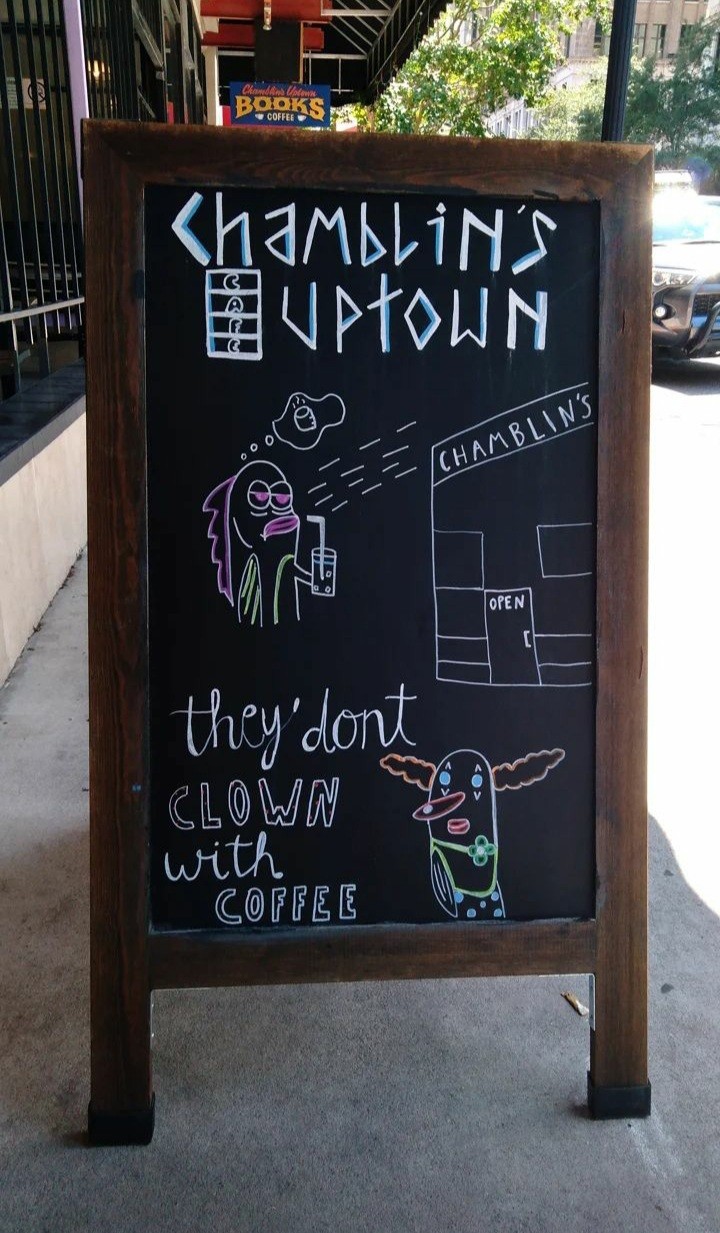 Chamblin's Uptown
BOOKS
COFFEE
Chamblin's
CAFE
Uptown
CHAMBLIN'S
OPEN
they'dont
CLOWN
with
COFFEE